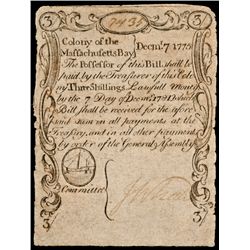 3 3
7431
Colony of the Decm.r 7. 1775
Massachusetts Bay
The Possessor of this Bill shall be
paid by the Treasurer of the Colo
ny Three Shillings Lawfull Money
by the 7 Day of Decm.r 1781 which
Bill shall be received for the afore
said sum in all payments at the
Treasury, and in all other payments
by order of the General Assembly
Committee
3 3